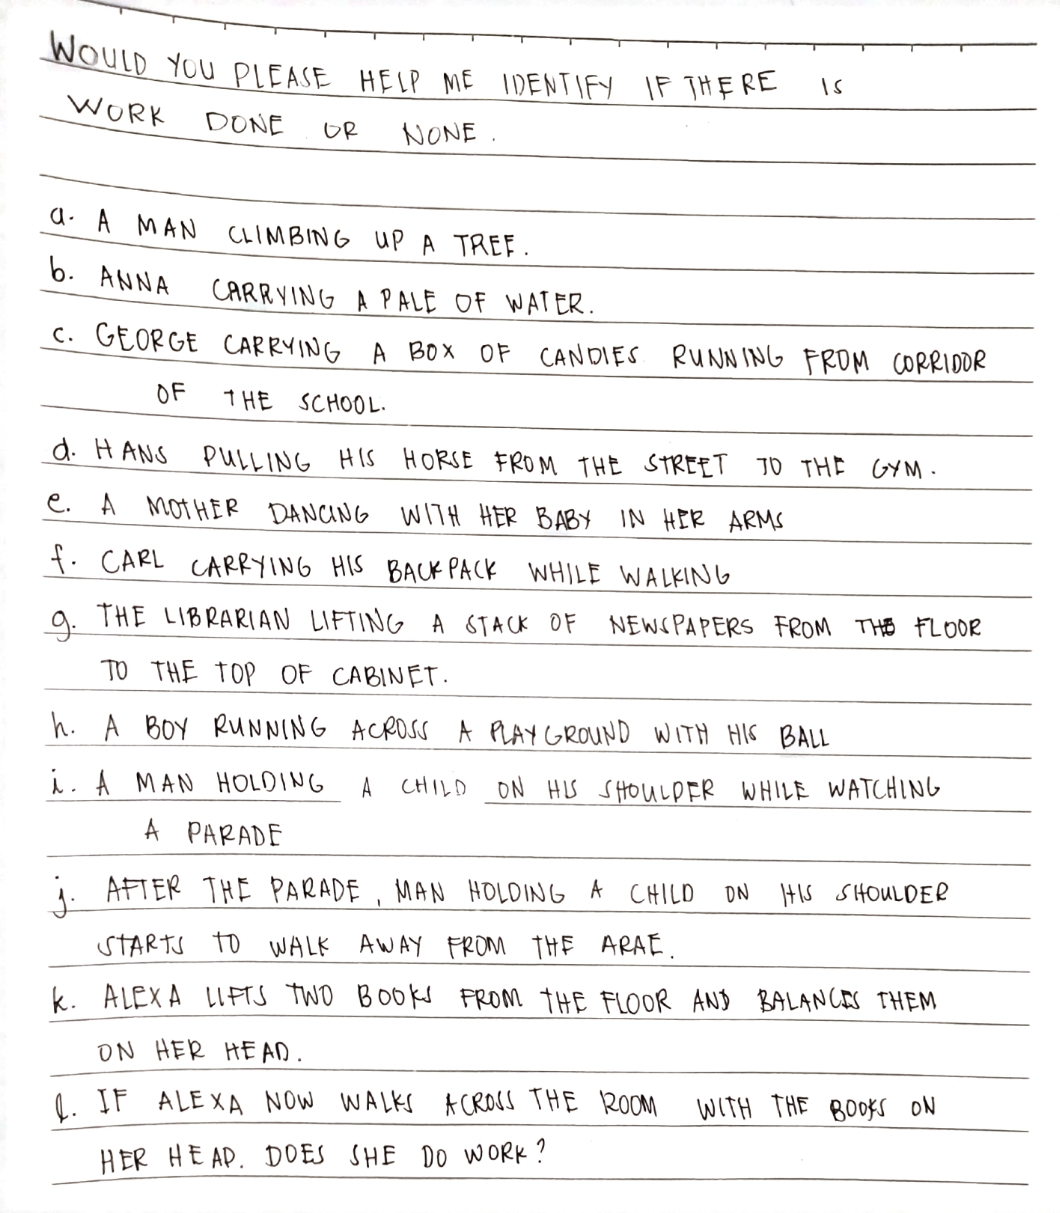 WOULD YOU PLEASE HELP ME IDENTIFY IF THERE IS
WORK DONE OR NONE.
a. A MAN CLIMBING UP A TREE.
b. ANNA CARRYING A PALE OF WATER.
c. GEORGE CARRYING A BOX OF CANDIES RUNNING FROM CORRIDOR
OF THE SCHOOL.
d. HANS PULLING HIS HORSE FROM THE STREET TO THE GYM.
e. A MOTHER DANCING WITH HER BABY IN HER ARMS
f. CARL CARRYING HIS BACKPACK WHILE WALKING
g. THE LIBRARIAN LIFTING A STACK OF NEWSPAPERS FROM THE FLOOR
TO THE TOP OF CABINET.
h. A BOY RUNNING ACROSS A PLAYGROUND WITH HIS BALL
i. A MAN HOLDING A CHILD ON HIS SHOULDER WHILE WATCHING
A PARADE
j. AFTER THE PARADE, MAN HOLDING A CHILD ON HIS SHOULDER
STARTS TO WALK AWAY FROM THE ARAE.
k. ALEXA LIFTS TWO BOOKS FROM THE FLOOR AND BALANCES THEM
ON HER HEAD.
l. IF ALEXA NOW WALKS ACROSS THE ROOM WITH THE BOOKS ON
HER HEAD. DOES SHE DO WORK?